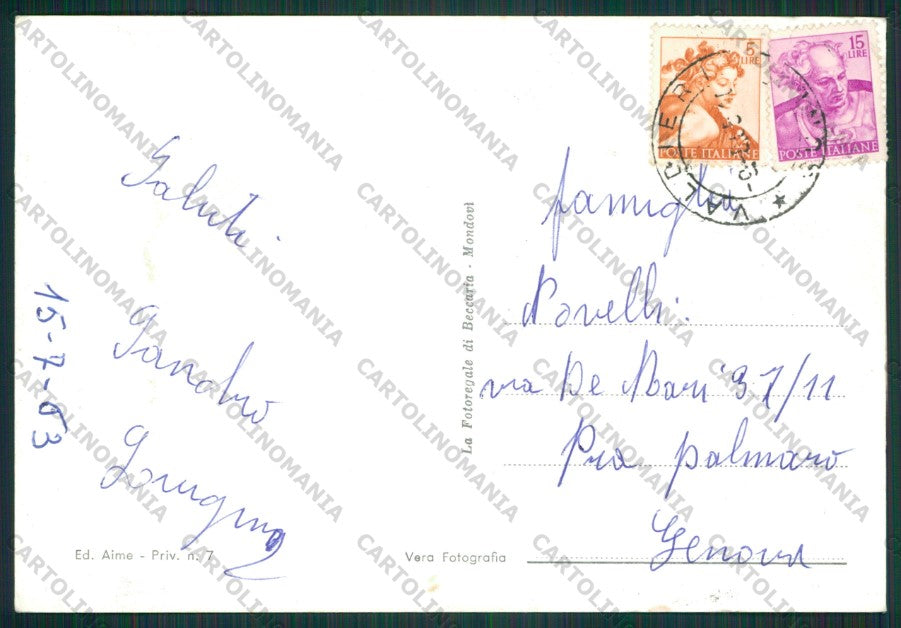 5
LIRE
POSTE ITALIANE
15
LIRE
POSTE ITALIANE
VALDIERI
Saluti.
15-7-63
famiglia
Novelli.
via De Mari 37/11
Pra palmaro
Genova
La Fotoregale di Beccaria - Mondovì
Ed. Aime - Priv. n. 7
Vera Fotografia
CARTOLINOMANIA